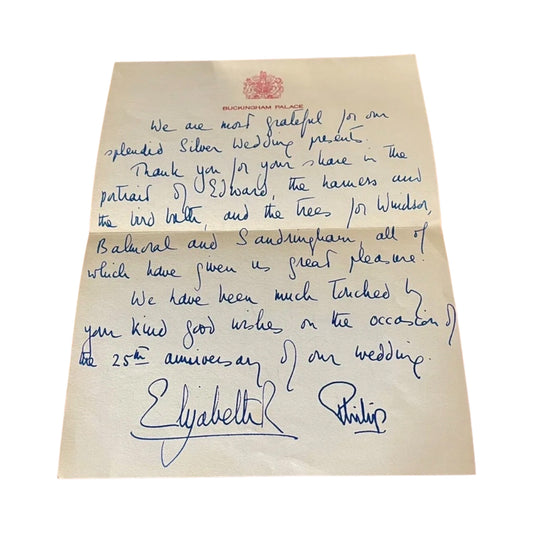 BUCKINGHAM PALACE
We are most grateful for our
splendid Silver Wedding presents.
Thank you for your share in the
portrait of Edward, the harness and
the bird bath, and the trees for Windsor,
Balmoral and Sandringham, all of
which have given us great pleasure.
We have been much touched by
your kind good wishes on the occasion of
the 25th anniversary of our wedding.
Elizabeth R
Philip